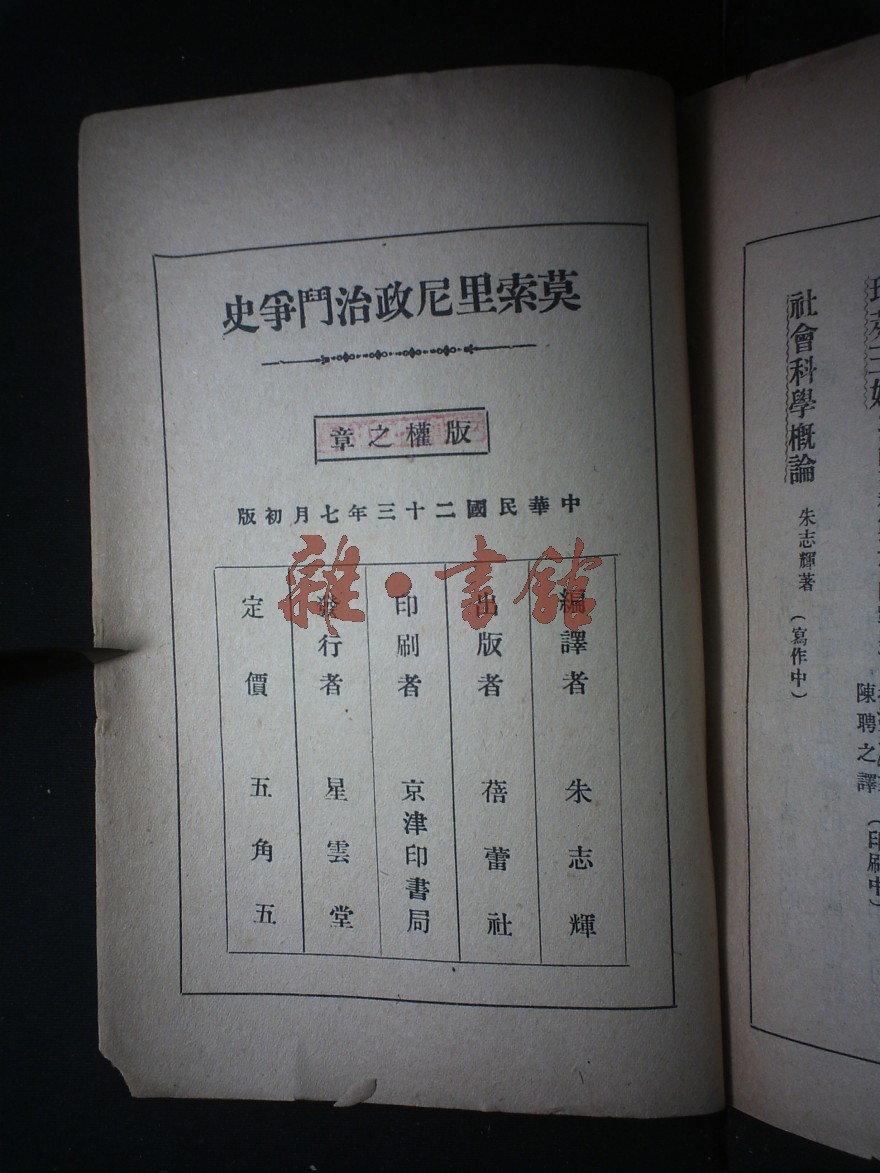 莫索里尼政治鬥爭史
版權之章
中華民國二十三年七月初版
編譯者 朱志輝
出版者 蓓蕾社
印刷者 京津印書局
發行者 星雲堂
定價 五角五
雜·書館
社會科學概論 朱志輝著 (寫作中)
陳聘之譯 (印刷中)